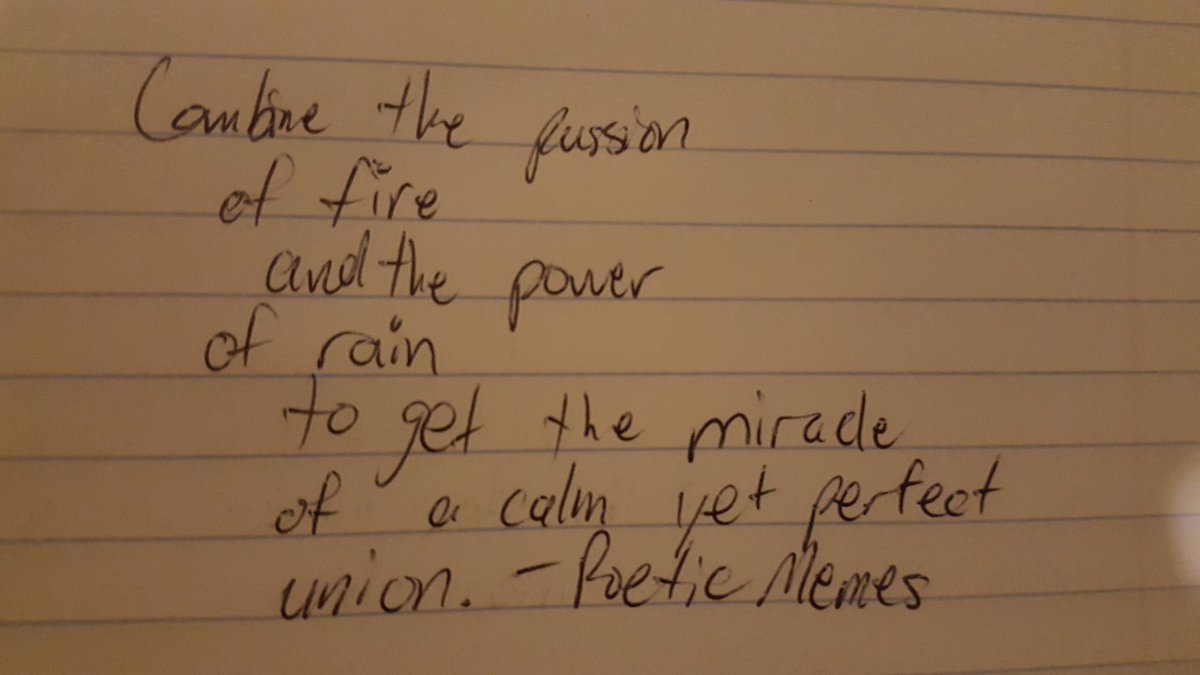 Combine the passion
of fire
and the power
of rain
to get the miracle
of a calm yet perfect
union. - Poetic Memes